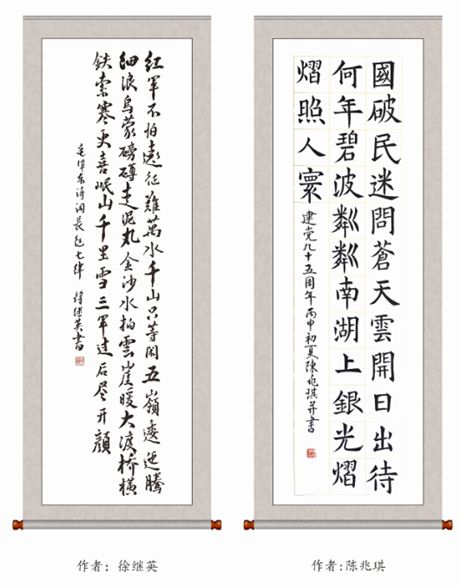 紅军不怕遠征難萬水千山只等閑五嶺逶迤騰
細浪烏蒙磅礴走泥丸金沙水拍雲崖暖大渡橋横
鉄索寒更喜岷山千里雪三军过后尽开顔
毛澤东诗词長征七律 徐继英書
國破民迷問蒼天雲開日出待
何年碧波粼粼南湖上銀光熠
熠照人寰
建党九十五周年丙申初夏陳兆琪并書
作者：徐继英
作者:陈兆琪